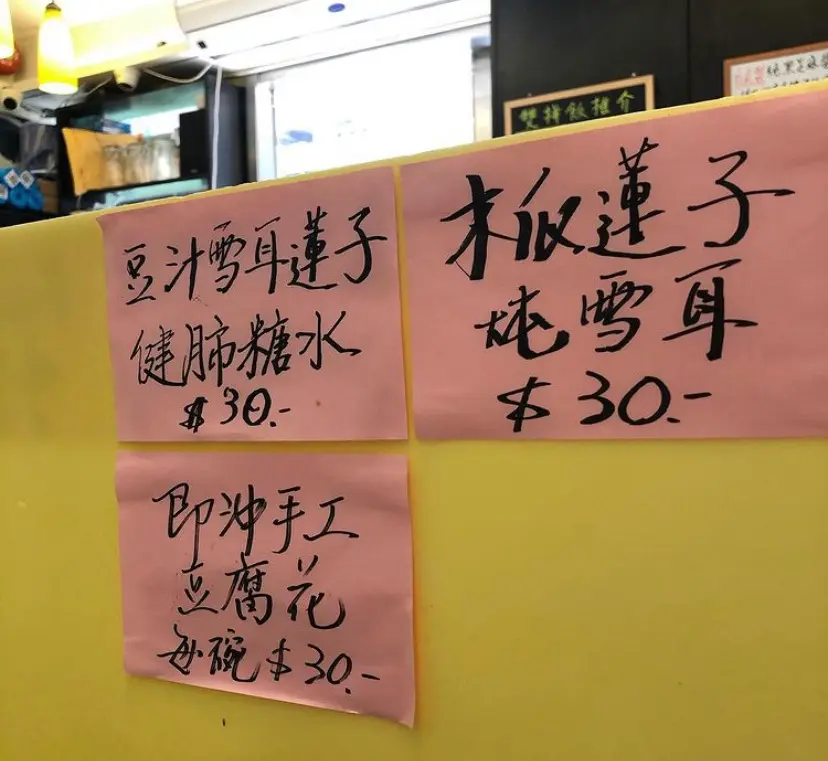 雙拼飯推介
豆汁雪耳蓮子
健肺糖水
$30.-
木瓜蓮子
炖雪耳
$30.-
即冲手工
豆腐花
每碗$30.-